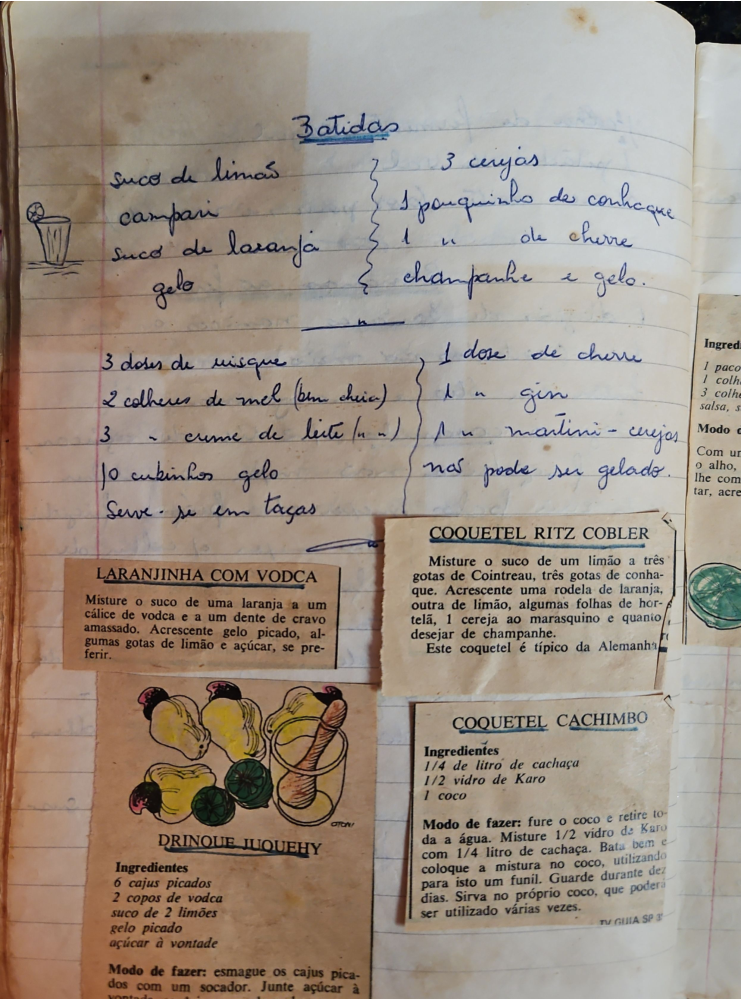 Batidas
suco de limão
campari
suco de laranja
gelo
3 cerejas
1 pouquinho de conhaque
1 " de cherre
champanhe e gelo.
3 doses de uisque
2 colheres de mel (bem cheia)
3 " creme de leite (" ")
10 cubinhos gelo
Serve-se em taças
1 dose de cherre
1 " gin
1 " martini - cerejas
não pode ser gelado.
LARANJINHA COM VODCA
Misture o suco de uma laranja a um
cálice de vodca e a um dente de cravo
amassado. Acrescente gelo picado, al-
gumas gotas de limão e açúcar, se pre-
ferir.
COQUETEL RITZ COBLER
Misture o suco de um limão a três
gotas de Cointreau, três gotas de conha-
que. Acrescente uma rodela de laranja,
outra de limão, algumas folhas de hor-
telã, 1 cereja ao marasquino e quanto
desejar de champanhe.
Este coquetel é típico da Alemanha
DRINQUE JUQUEHY
Ingredientes
6 cajus picados
2 copos de vodca
suco de 2 limões
gelo picado
açúcar à vontade
Modo de fazer: esmague os cajus pica-
dos com um socador. Junte açúcar à
COQUETEL CACHIMBO
Ingredientes
1/4 de litro de cachaça
1/2 vidro de Karo
1 coco
Modo de fazer: fure o coco e retire to-
da a água. Misture 1/2 vidro de Karo
com 1/4 litro de cachaça. Bata bem e
coloque a mistura no coco, utilizando
para isto um funil. Guarde durante dez
dias. Sirva no próprio coco, que poderá
ser utilizado várias vezes.
TV GUIA SP
Ingred
1 paco
1 colh
3 colhe
salsa, s
Modo d
Com um
o alho,
lhe com
tar, acre